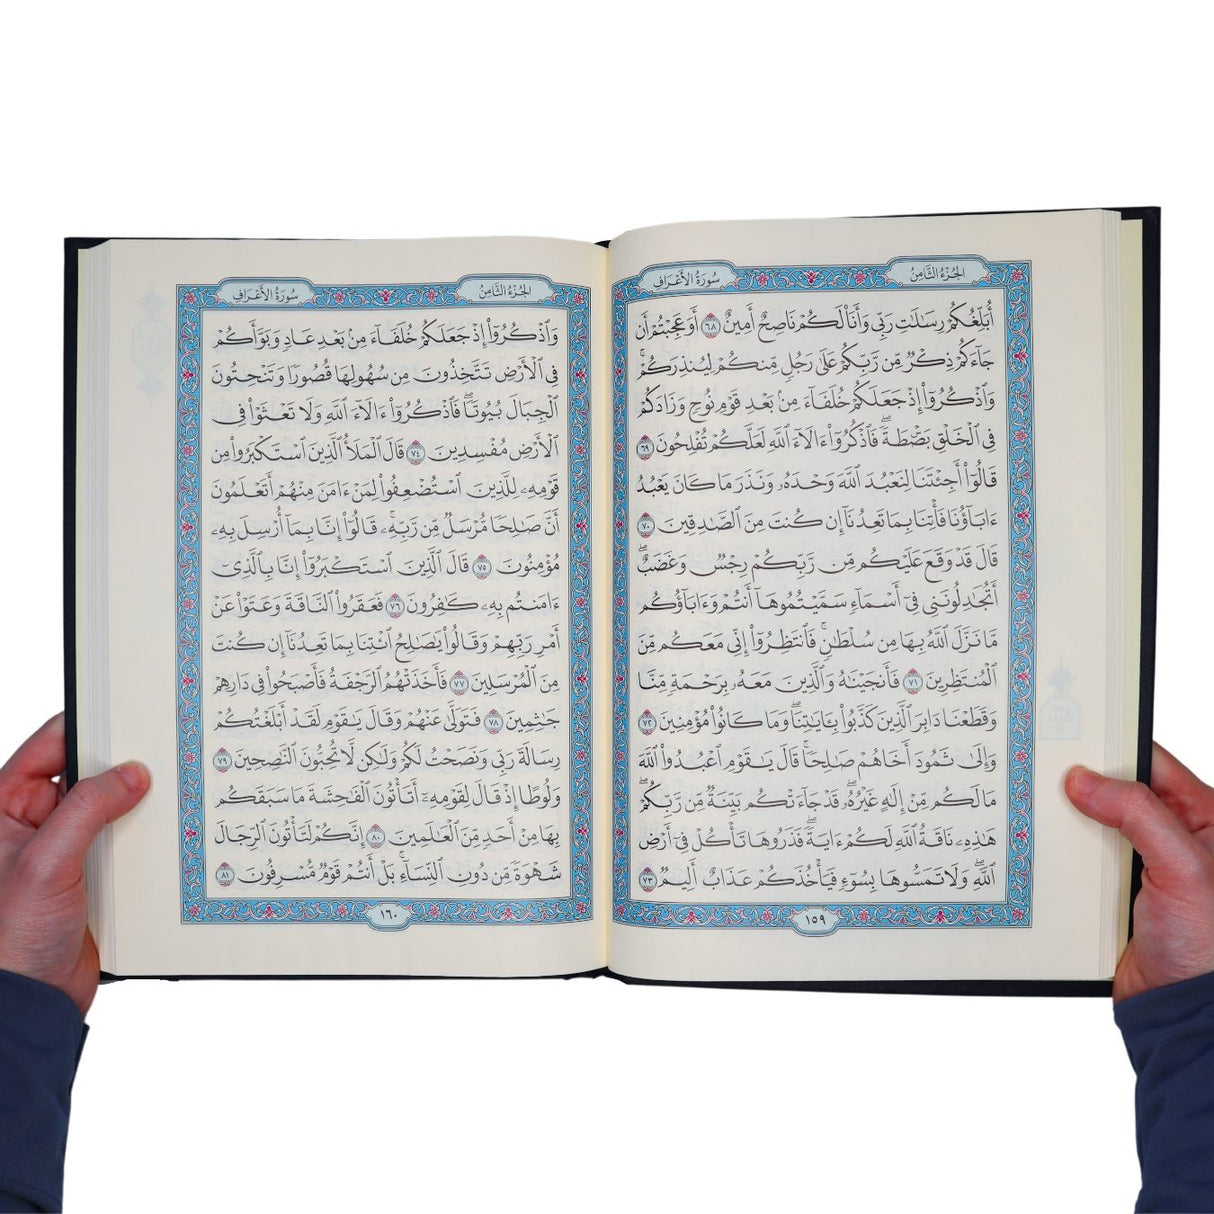 الجزء الثامن
سورة الأعراف
أُبَلِّغُكُمْ رِسَٰلَٰتِ رَبِّي وَأَنَا۠ لَكُمْ نَاصِحٌ أَمِينٌ ٦٨ أَوَعَجِبْتُمْ أَن
جَآءَكُمْ ذِكْرٌ مِّن رَّبِّكُمْ عَلَىٰ رَجُلٍ مِّنكُمْ لِيُنذِرَكُمْ ۚ
وَٱذْكُرُوٓا۟ إِذْ جَعَلَكُمْ خُلَفَآءَ مِنۢ بَعْدِ قَوْمِ نُوحٍ وَزَادَكُمْ
فِي ٱلْخَلْقِ بَصْۜطَةً ۖ فَٱذْكُرُوٓا۟ ءَالَآءَ ٱللَّهِ لَعَلَّكُمْ تُفْلِحُونَ ٦٩
قَالُوٓا۟ أَجِئْتَنَا لِنَعْبُدَ ٱللَّهَ وَحْدَهُۥ وَنَذَرَ مَا كَانَ يَعْبُدُ
ءَابَآؤُنَا فَأْتِنَا بِمَا تَعِدُنَآ إِن كُنتَ مِنَ ٱلصَّٰدِقِينَ ٧٠
قَالَ قَدْ وَقَعَ عَلَيْكُم مِّن رَّبِّكُمْ رِجْسٌ وَغَضَبٌ ۖ
أَتُجَٰدِلُونَنِي فِيٓ أَسْمَآءٍ سَمَّيْتُمُوهَآ أَنتُمْ وَءَابَآؤُكُم
مَّا نَزَّلَ ٱللَّهُ بِهَا مِن سُلْطَٰنٍ ۚ فَٱنتَظِرُوٓا۟ إِنِّي مَعَكُم مِّنَ
ٱلْمُنتَظِرِينَ ٧١ فَأَنجَيْنَٰهُ وَٱلَّذِينَ مَعَهُۥ بِرَحْمَةٍ مِّنَّا
وَقَطَعْنَا دَابِرَ ٱلَّذِينَ كَذَّبُوا۟ بِـَٔايَٰتِنَا ۖ وَمَا كَانُوا۟ مُؤْمِنِينَ ٧٢
وَإِلَىٰ ثَمُودَ أَخَاهُمْ صَٰلِحًا ۗ قَالَ يَٰقَوْمِ ٱعْبُدُوا۟ ٱللَّهَ
مَا لَكُم مِّنْ إِلَٰهٍ غَيْرُهُۥ ۖ قَدْ جَآءَتْكُم بَيِّنَةٌ مِّن رَّبِّكُمْ ۖ
هَٰذِهِۦ نَاقَةُ ٱللَّهِ لَكُمْ ءَايَةً ۖ فَذَرُوهَا تَأْكُلْ فِيٓ أَرْضِ
ٱللَّهِ ۖ وَلَا تَمَسُّوهَا بِسُوٓءٍ فَيَأْخُذَكُمْ عَذَابٌ أَلِيمٌ ٧٣
١٥٩
الجزء الثامن
سورة الأعراف
وَٱذْكُرُوٓا۟ إِذْ جَعَلَكُمْ خُلَفَآءَ مِنۢ بَعْدِ عَادٍ وَبَوَّأَكُمْ
فِي ٱلْأَرْضِ تَتَّخِذُونَ مِن سُهُولِهَا قُصُورًا وَتَنْحِتُونَ
ٱلْجِبَالَ بُيُوتًا ۖ فَٱذْكُرُوٓا۟ ءَالَآءَ ٱللَّهِ وَلَا تَعْثَوْا۟ فِي
ٱلْأَرْضِ مُفْسِدِينَ ٧٤ قَالَ ٱلْمَلَأُ ٱلَّذِينَ ٱسْتَكْبَرُوا۟ مِن
قَوْمِهِۦ لِلَّذِينَ ٱسْتُضْعِفُوا۟ لِمَنْ ءَامَنَ مِنْهُمْ أَتَعْلَمُونَ
أَنَّ صَٰلِحًا مُّرْسَلٌ مِّن رَّبِّهِۦ ۚ قَالُوٓا۟ إِنَّا بِمَآ أُرْسِلَ بِهِۦ
مُؤْمِنُونَ ٧٥ قَالَ ٱلَّذِينَ ٱسْتَكْبَرُوٓا۟ إِنَّا بِٱلَّذِيٓ
ءَامَنتُم بِهِۦ كَٰفِرُونَ ٧٦ فَعَقَرُوا۟ ٱلنَّاقَةَ وَعَتَوْا۟ عَنْ
أَمْرِ رَبِّهِمْ وَقَالُوا۟ يَٰصَٰلِحُ ٱئْتِنَا بِمَا تَعِدُنَآ إِن كُنتَ
مِنَ ٱلْمُرْسَلِينَ ٧٧ فَأَخَذَتْهُمُ ٱلرَّجْفَةُ فَأَصْبَحُوا۟ فِي دَارِهِمْ
جَٰثِمِينَ ٧٨ فَتَوَلَّىٰ عَنْهُمْ وَقَالَ يَٰقَوْمِ لَقَدْ أَبْلَغْتُكُمْ
رِسَالَةَ رَبِّي وَنَصَحْتُ لَكُمْ وَلَٰكِن لَّا تُحِبُّونَ ٱلنَّٰصِحِينَ ٧٩
وَلُوطًا إِذْ قَالَ لِقَوْمِهِۦٓ أَتَأْتُونَ ٱلْفَٰحِشَةَ مَا سَبَقَكُم
بِهَا مِنْ أَحَدٍ مِّنَ ٱلْعَٰلَمِينَ ٨٠ إِنَّكُمْ لَتَأْتُونَ ٱلرِّجَالَ
شَهْوَةً مِّن دُونِ ٱلنِّسَآءِ ۚ بَلْ أَنتُمْ قَوْمٌ مُّسْرِفُونَ ٨١
١٦٠